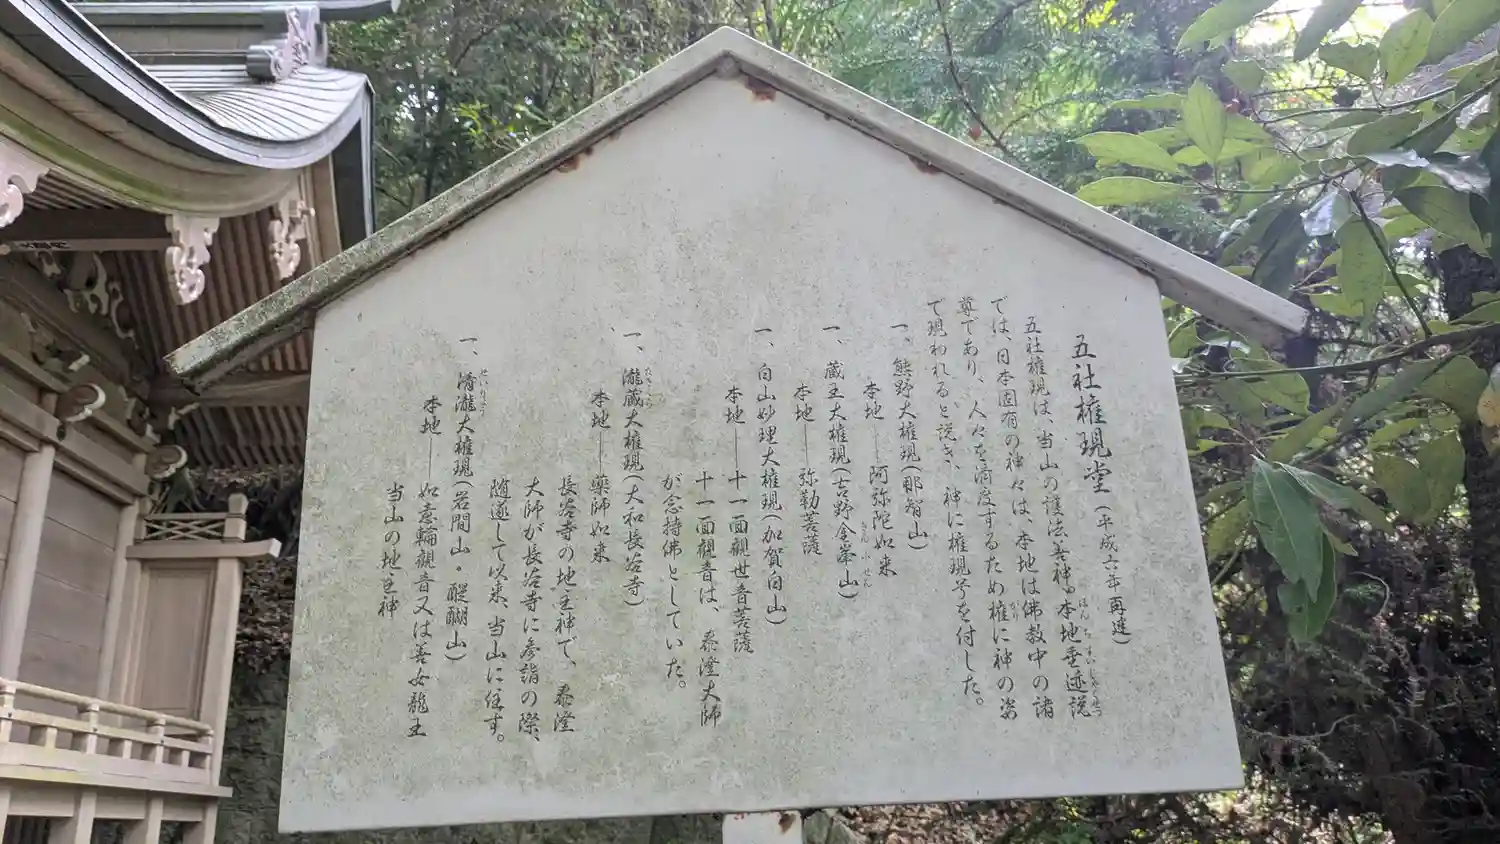 五社権現堂(平成六年再建)
五社権現は、当山の護法善神。本地垂迹説
ほんちすいじゃくせつ
では、日本固有の神々は、本地は佛教中の諸
尊であり、人々を済度するため権に神の姿
かり
で現われると説き、神に権現号を付した。
一、熊野大権現(那智山)
本地――阿弥陀如来
一、蔵王大権現(吉野金峯山)
きんぶせん
本地――弥勒菩薩
一、白山妙理大権現(加賀白山)
本地――十一面観世音菩薩
十一面観音は、泰澄大師
が念持佛としていた。
一、瀧蔵大権現(大和長谷寺)
本地――薬師如来
長谷寺の地主神で、泰澄
大師が長谷寺に参詣の際、
随逐して以来、当山に住す。
一、清瀧大権現(岩間山・醍醐山)
せいりゅう
本地――如意輪観音又は善女龍王
当山の地主神